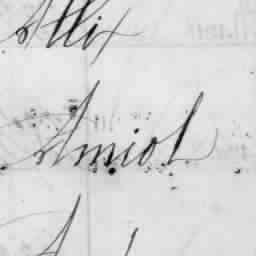 Allix
Amiol